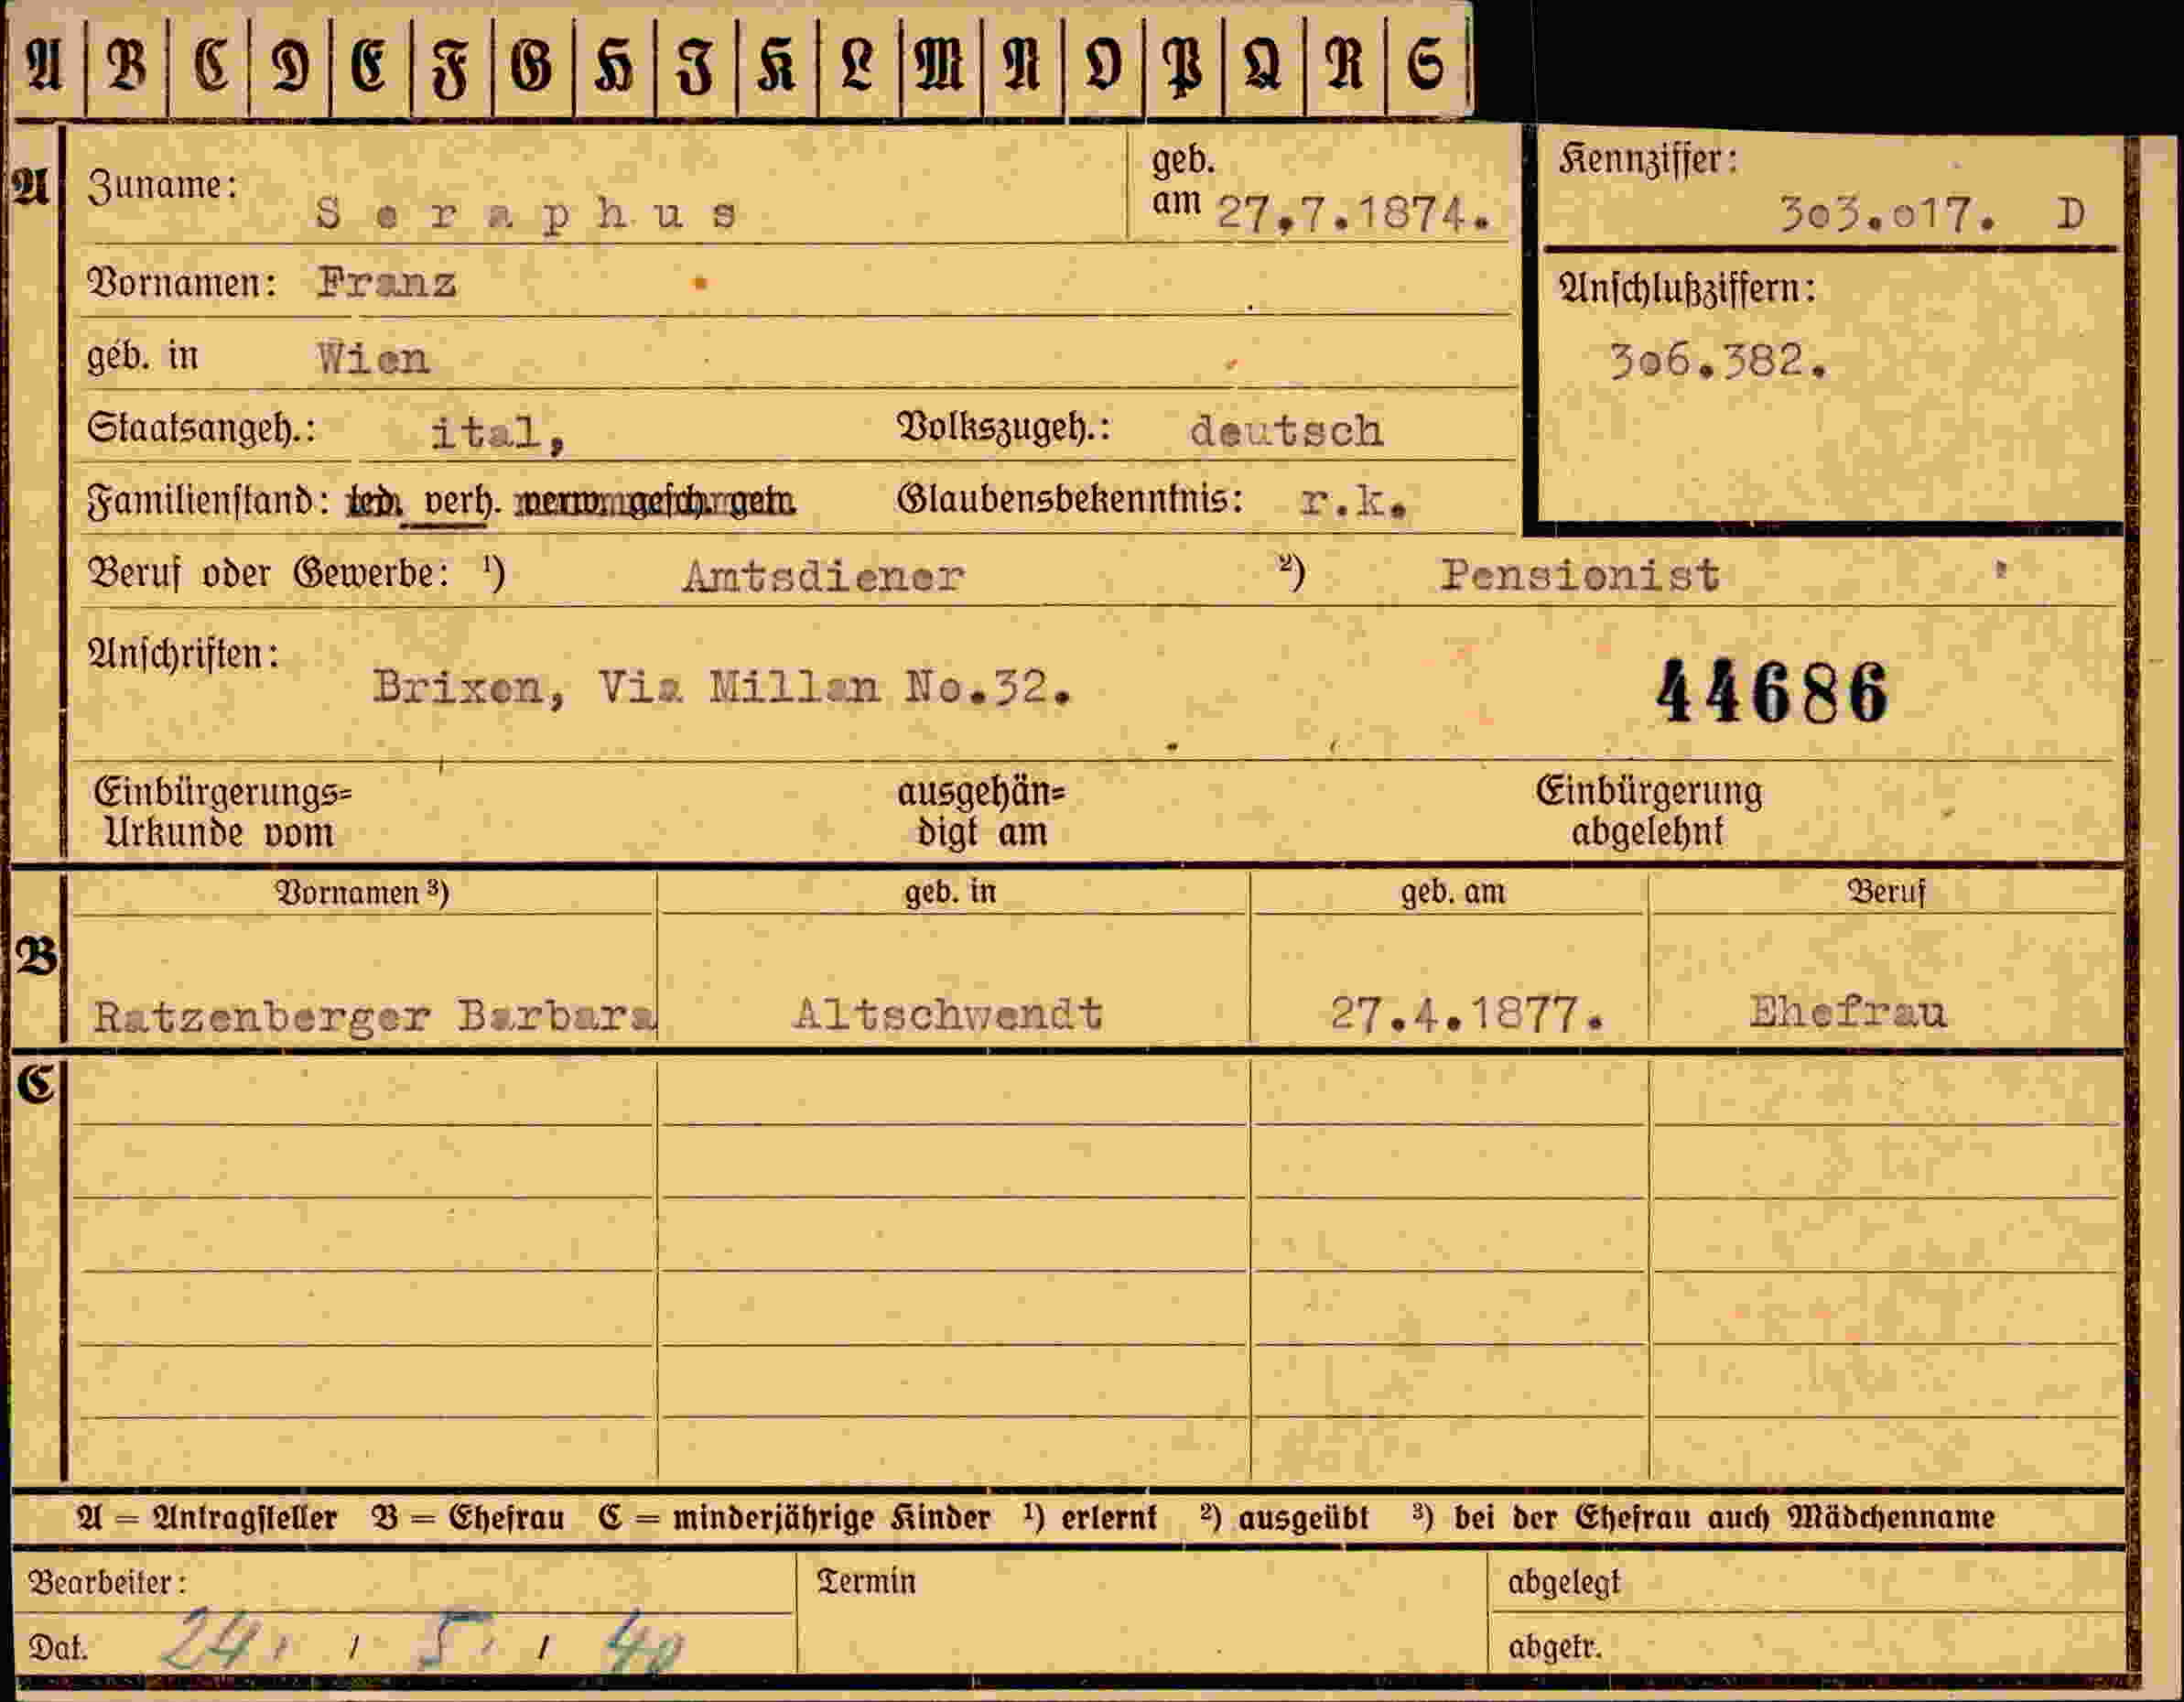 A B C D E F G H I K L M N O P Q R S
A Zuname: Seraphus geb. am 27.7.1874. Kennziffer: 303.017. D
Vornamen: Franz Anschlußziffern:
geb. in Wien 306.382.
Staatsangeh.: ital, Volkszugeh.: deutsch
Familienstand: led. verh. verw. gesch. getr. Glaubensbekenntnis: r.k.
Beruf oder Gewerbe: ¹) Amtsdiener ²) Pensionist
Anschriften: Brixen, Via Millan No.32. 44686
Einbürgerungs= ausgehän= Einbürgerung
Urkunde vom digt am abgelehnt
B Vornamen ³) geb. in geb. am Beruf
Ratzenberger Barbara Altschwendt 27.4.1877. Ehefrau
C
A = Antragsteller B = Ehefrau C = minderjährige Kinder ¹) erlernt ²) ausgeübt ³) bei der Ehefrau auch Mädchenname
Bearbeiter: Termin abgelegt
Dat. 24. / 5. / 40 abgetr.